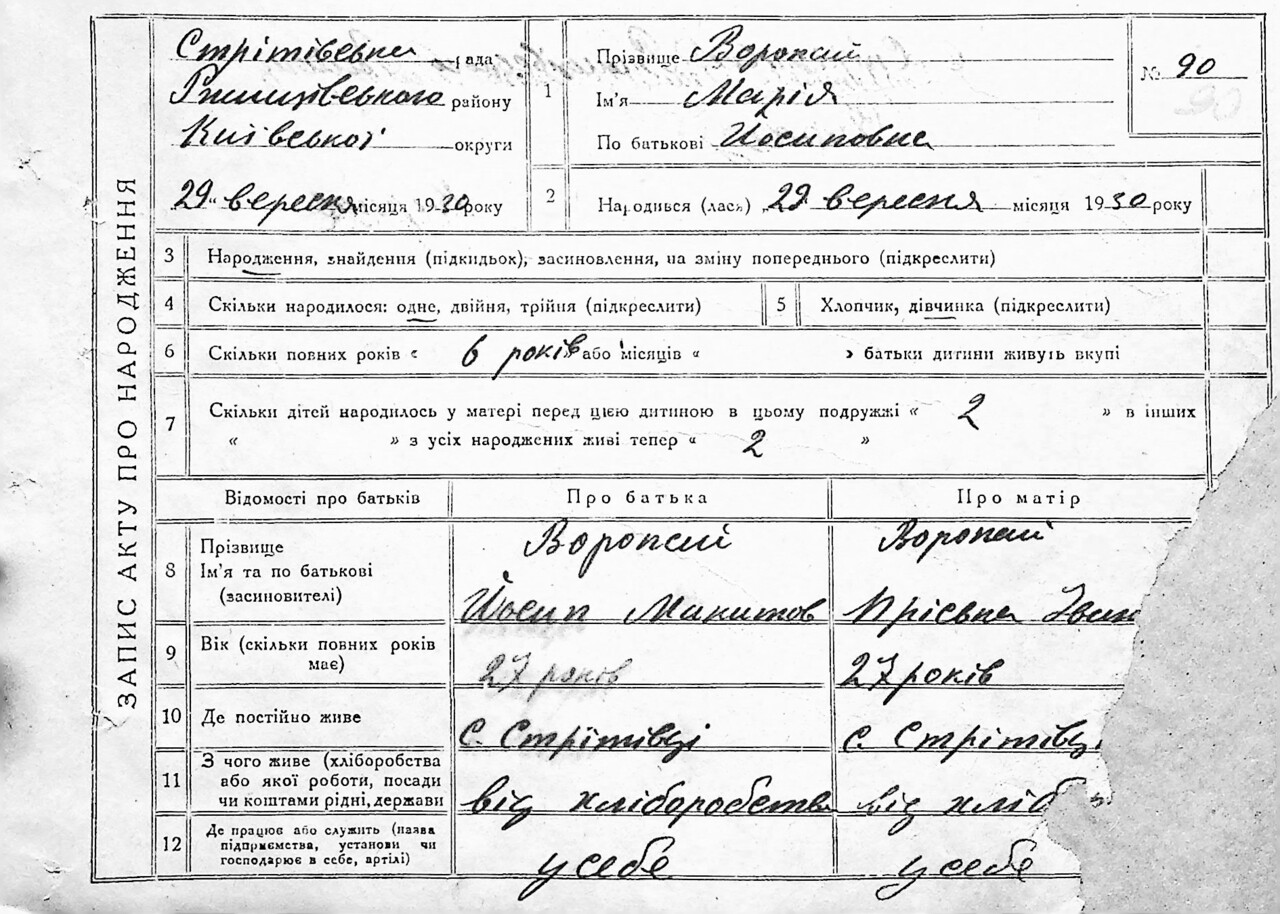 ЗАПИС АКТУ ПРО НАРОДЖЕННЯ
Стрітівська рада
Ржищівського району
Київської округи
29 вересня місяця 1930 року
1
Прізвище Воропай
Ім'я Марія
По батькові Йосиповна
№ 90
2 Народився (лася) „29 вересня місяця 1930 року
3 Народження, знайдення (підкидьок), засиновлення, на зміну попереднього (підкреслити)
4 Скільки народилося: одне, двійня, трійня (підкреслити) 5 Хлопчик, дівчинка (підкреслити)
6 Скільки повних років « 6 років або місяців « » батьки дитини живуть вкупі
7 Скільки дітей народилось у матері перед цією дитиною в цьому подружжі « 2 » в інших
« » з усіх народжених живі тепер « 2 »
Відомості про батьків Про батька Про матір
8 Прізвище Воропай Воропай
Ім'я та по батькові
(засиновителі) Йосип Микитов Пріська Іван
9 Вік (скільки повних років
має) 27 років 27 років
10 Де постійно живе с. Стрітівці с. Стрітівці
11 З чого живе (хліборобства
або якої роботи, посади
чи коштами рідні, держави від хліборобства від хліб
12 Де працює або служить (назва
підприємства, установи чи
господарює в себе, артілі) у себе у себе